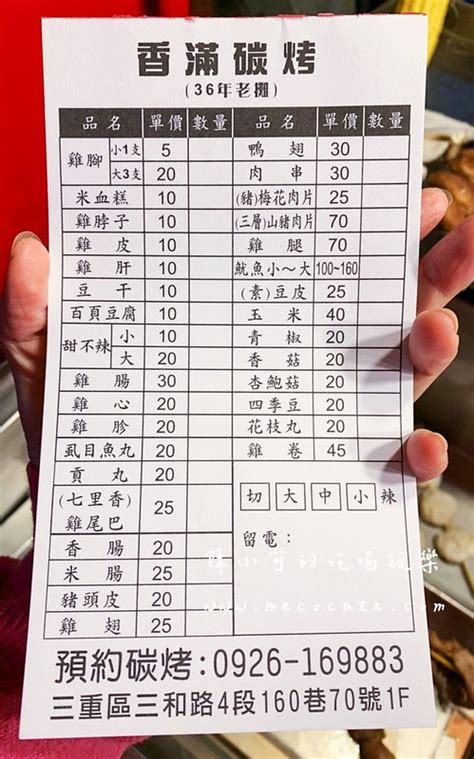 香滿碳烤
(36年老攤)
品名 單價 數量
雞腳 小1支 5
大3支 20
米血糕 10
雞脖子 10
雞皮 10
雞肝 10
豆干 10
百頁豆腐 10
甜不辣 小 10
大 20
雞腸 30
雞心 20
雞胗 20
虱目魚丸 20
貢丸 20
(七里香)
雞尾巴 25
香腸 20
米腸 25
豬頭皮 20
雞翅 25
品名 單價 數量
鴨翅 30
肉串 30
(豬)梅花肉片 25
(三層)山豬肉片 70
雞腿 70
魷魚小~大 100~160
(素)豆皮 25
玉米 40
青椒 20
香菇 20
杏鮑菇 20
四季豆 20
花枝丸 20
雞卷 45
切 大 中 小 辣
留電：
陳小可的吃喝玩樂
www.mecocute.com
預約碳烤:0926-169883
三重區三和路4段160巷70號1F